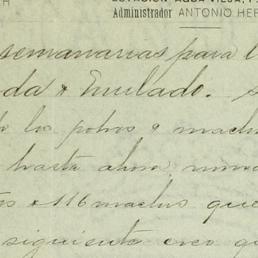 ESTACION AGUA VIEJA, F.
Administrador ANTONIO HER
semanarias para l
da & Emilado.
los potros & mach
hasta ahora
as & 116 machos que
siguiente creo q